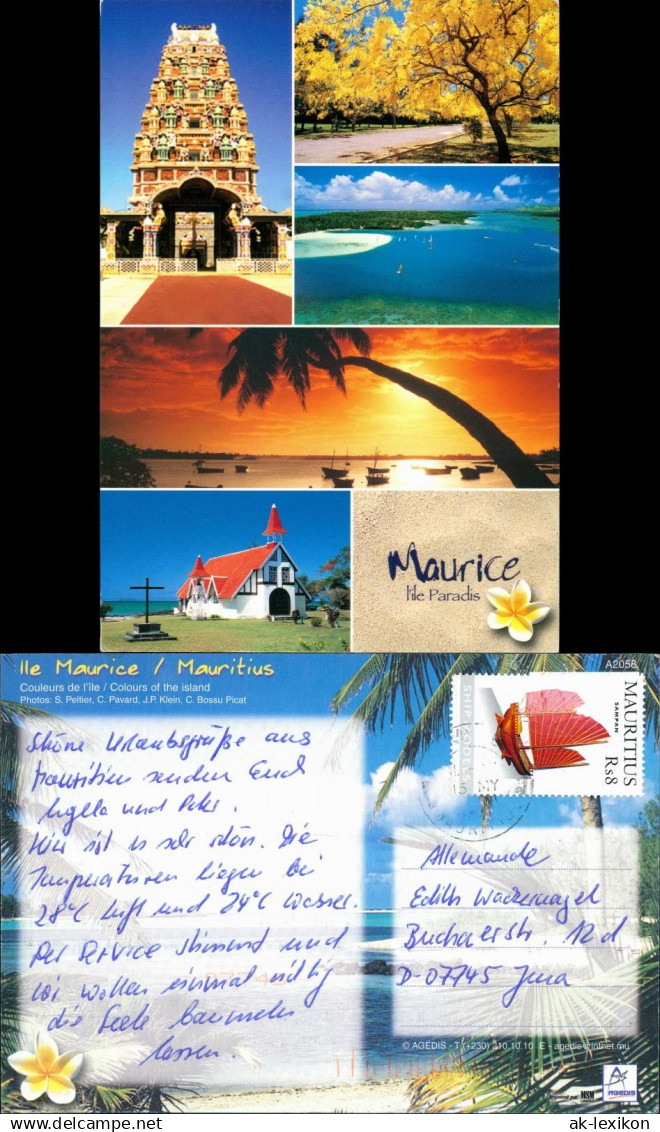 Maurice
l'île Paradis
Ile Maurice / Mauritius
Couleurs de l'île / Colours of the island
Photos: S. Peltier, C. Pavard, J.P. Klein, C. Bossu Picat
A2058
SHIP MODELS
MAURITIUS
SAMPAN
Rs8
Schöne Urlaubsgrüße aus
Mauritius senden Euch
und Peter.
Hier ist es sehr schön. Die
Temperaturen liegen bei
28°C Luft und 24°C Wasser.
Der Service stimmt und
wir wollen einmal richtig
die Seele baumeln
lassen.
Allemande
Edith Wackernagel
Buchaerstr. 12d
D-07745 Jena
© AGEDIS - T (+230) 210.10.10 E - agedis@intnet.mu
MSM
AGEDIS
ak-lexikon